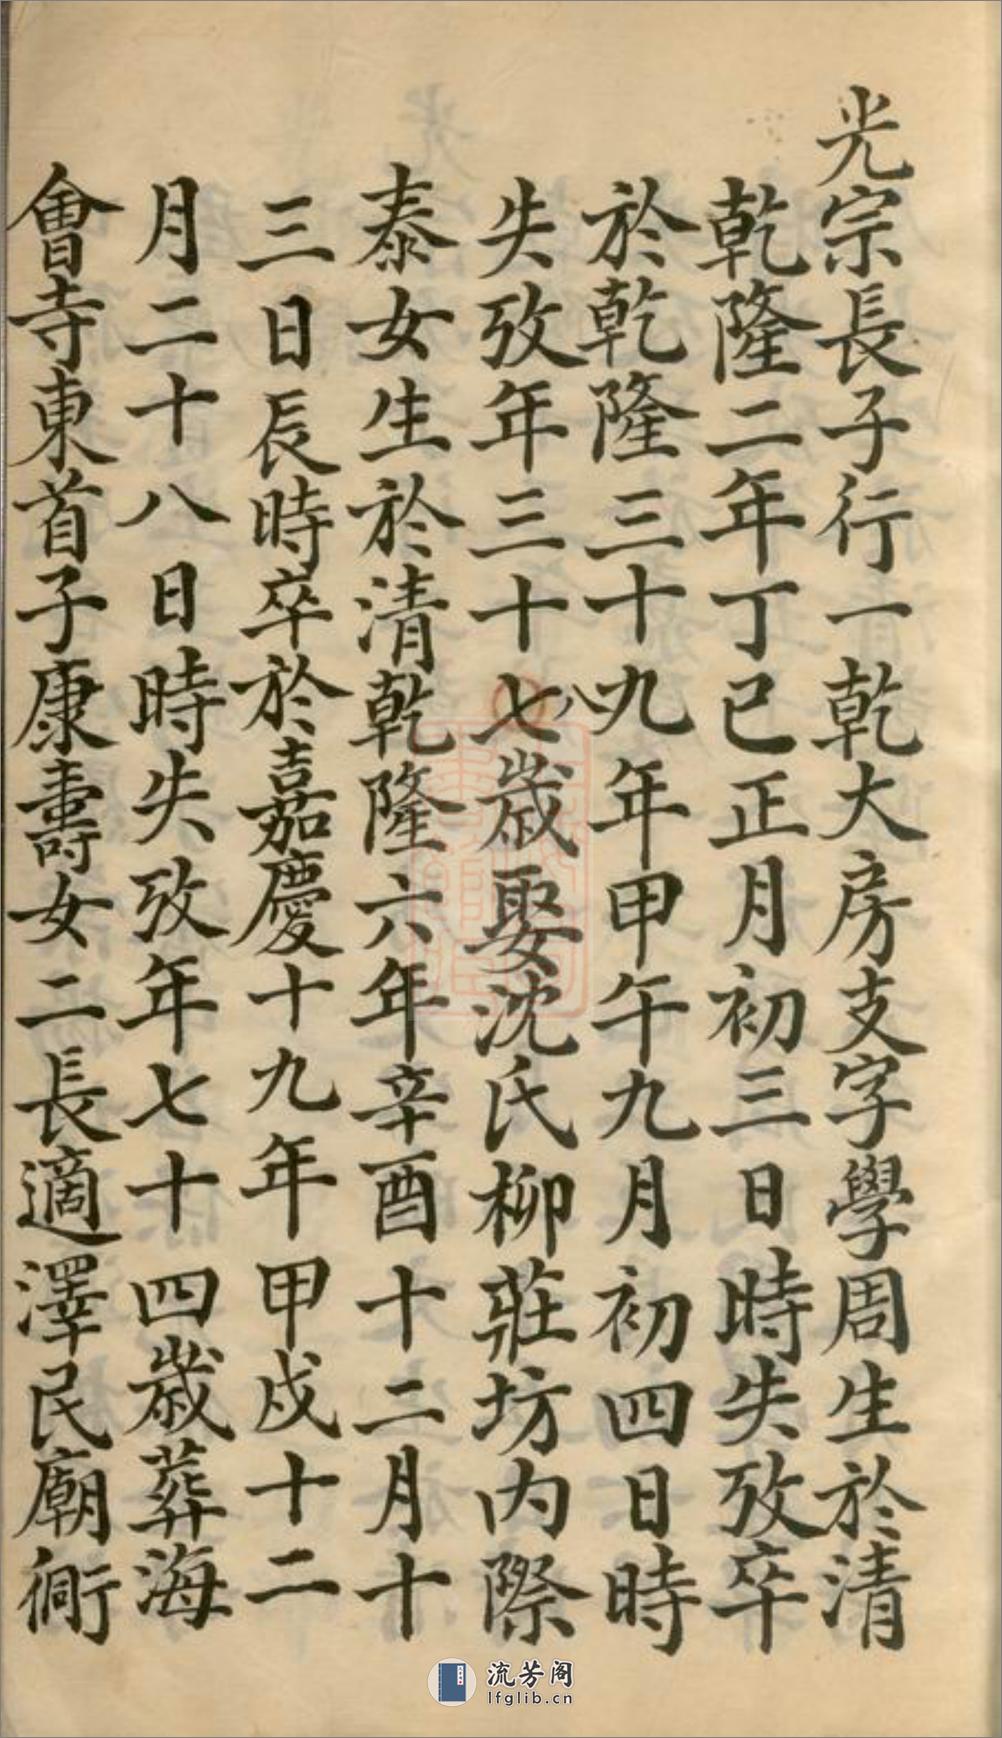 光宗長子行一乾大房支字學周生於清
乾隆二年丁巳正月初三日時失攷卒
於乾隆三十九年甲午九月初四日時
失攷年三十七八歲娶沈氏柳莊坊内際
泰女生於清乾隆六年辛酉十二月十
三日辰時卒於嘉慶十九年甲戌十二
月二十八日時失攷年七十四歲葬海
會寺東首子康壽女二長適澤民廟衕
流芳阁
lfglib.cn